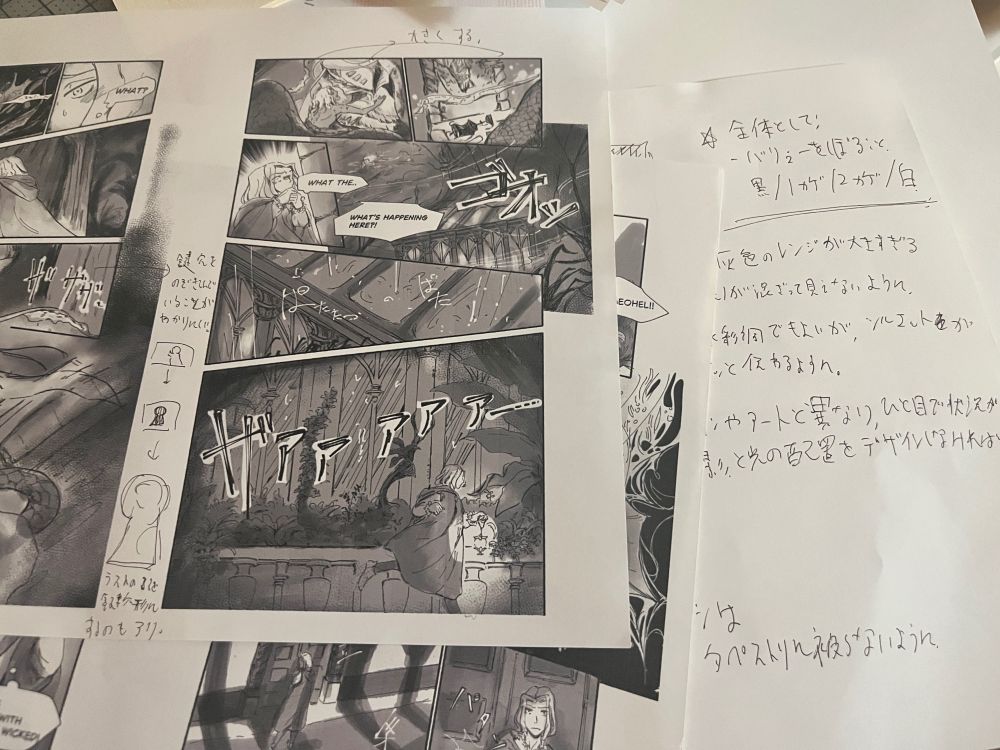 大きくする。
WHAT?
WHAT THE..
WHAT'S HAPPENING
HERE?!
ゴオッ
ザザザ
ぱたたっ
ぱた
ザァァァァァー
鍵穴を
のぞきこんで
いることが
わかりにくい
ラストのコマを
鍵穴形に
するのもアリ。
EOHEL!!
WITH
WICKED!
バタ
☆ 全体として、
ーバリューをしぼること。
黒/1カゲ/2カゲ/白
灰色のレンジが大きすぎる
が混ざって見えないように。
でもよいが、シルエットが
と伝わるように。
やアートと異なり、ひと目で状況が
影と光の配置をデザインしなければ
は
タペストリに被らないように。